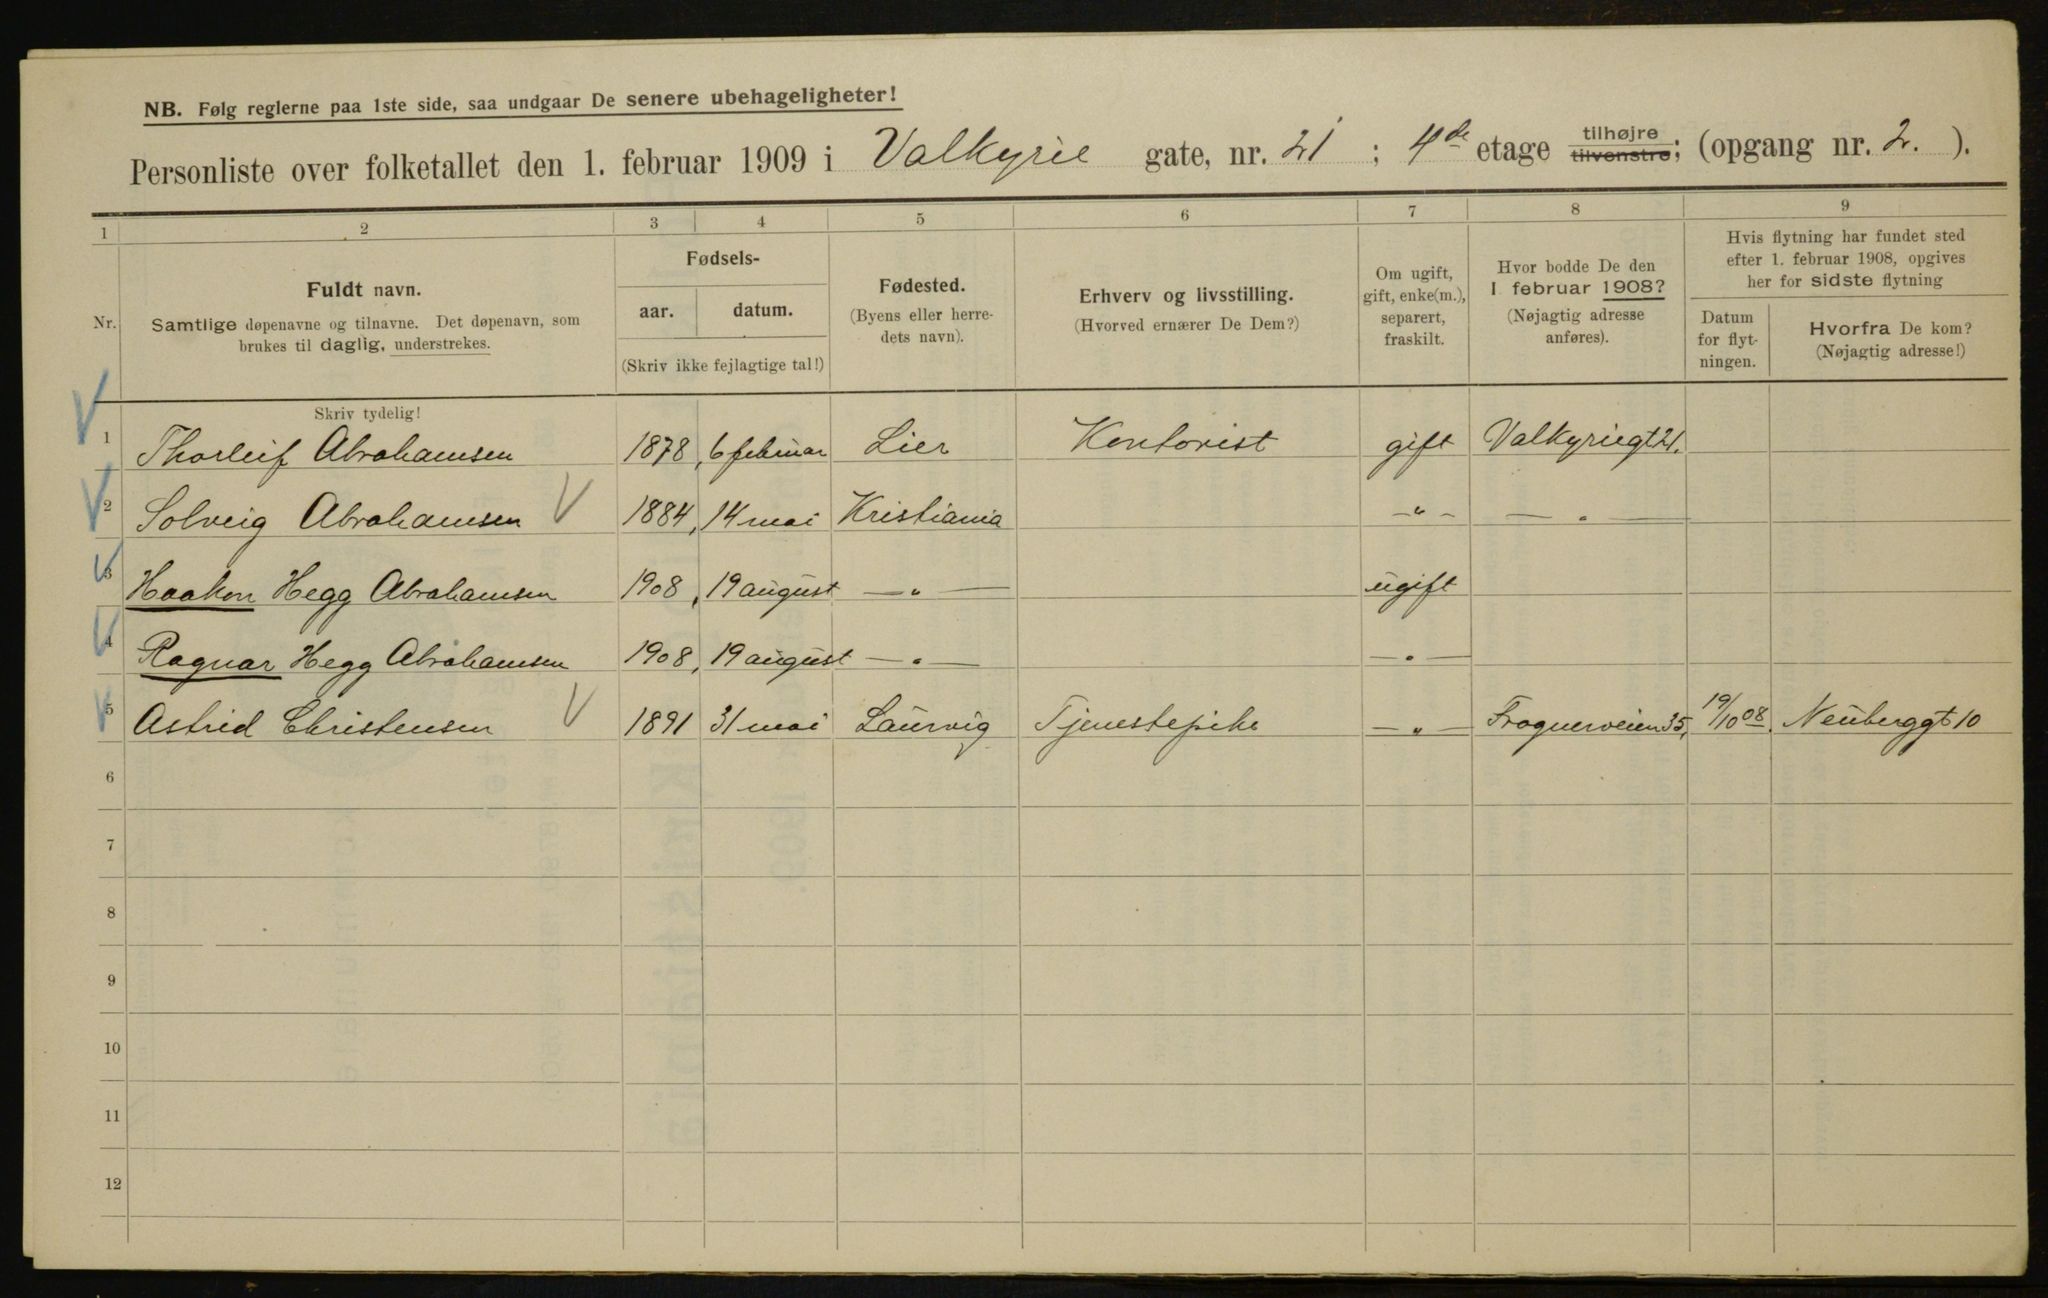 NB. Følg reglerne paa 1ste side, saa undgaar De senere ubehageligheter!
Personliste over folketallet den 1. februar 1909 i Valkyrie gate, nr. 21 ; 4de etage tilhøjre tilvenstre; (opgang nr. 2. ).
1 2 3 4 5 6 7 8 9
Nr.
Fuldt navn.
Samtlige døpenavne og tilnavne. Det døpenavn, som
brukes til daglig, understrekes.
Skriv tydelig!
Fødsels-
aar. datum.
(Skriv ikke fejlagtige tal!)
Fødested.
(Byens eller herre-
dets navn).
Erhverv og livsstilling.
(Hvorved ernærer De Dem?)
Om ugift,
gift, enke(m.),
separert,
fraskilt.
Hvor bodde De den
1 februar 1908?
(Nøjagtig adresse
anføres).
Hvis flytning har fundet sted
efter 1. februar 1908, opgives
her for sidste flytning
Datum
for flyt-
ningen.
Hvorfra De kom?
(Nøjagtig adresse!)
1 Thorleif Abrahamsen 1878, 6 februar Lier Kontorist gift Valkyriegt 21.
2 Solveig Abrahamsen 1884, 14 mai Kristiania — " — — " —
3 Haakon Hegg Abrahamsen 1908, 19 august — " — ugift
4 Ragnar Hegg Abrahamsen 1908, 19 august — " — — " —
5 Astrid Christensen 1891 31 mai Laurvig Tjenestepike — " — Frognerveien 35, 19/10 08. Neuberggt 10
6
7
8
9
10
11
12